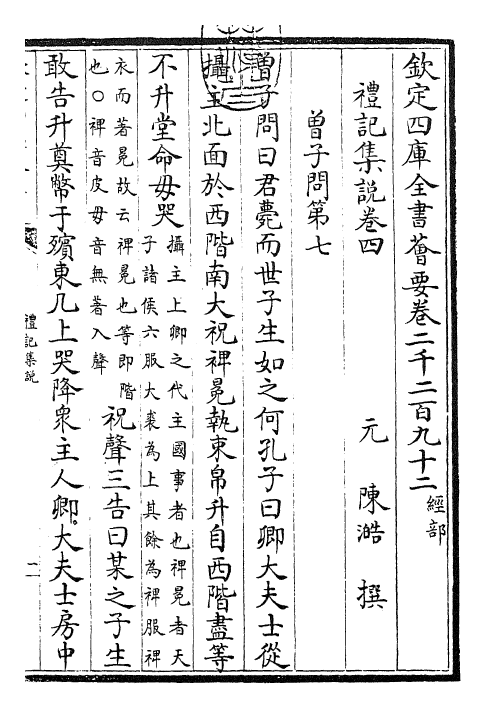 欽定四庫全書薈要卷二千二百九十二
經部
禮記集說卷四
元 陳澔 撰
曾子問第七
曾子問曰君薨而世子生如之何孔子曰卿大夫士從
攝主北面於西階南大祝裨冕執束帛升自西階盡等
不升堂命毋哭
攝主上卿之代主國事者也裨冕者天
子諸侯六服大裘為上其餘為裨服裨
衣而著冕故云裨冕也等即階
也○裨音皮毋音無著入聲
祝聲三告曰某之子生
敢告升奠幣于殯東几上哭降眾主人卿大夫士房中
禮記集說